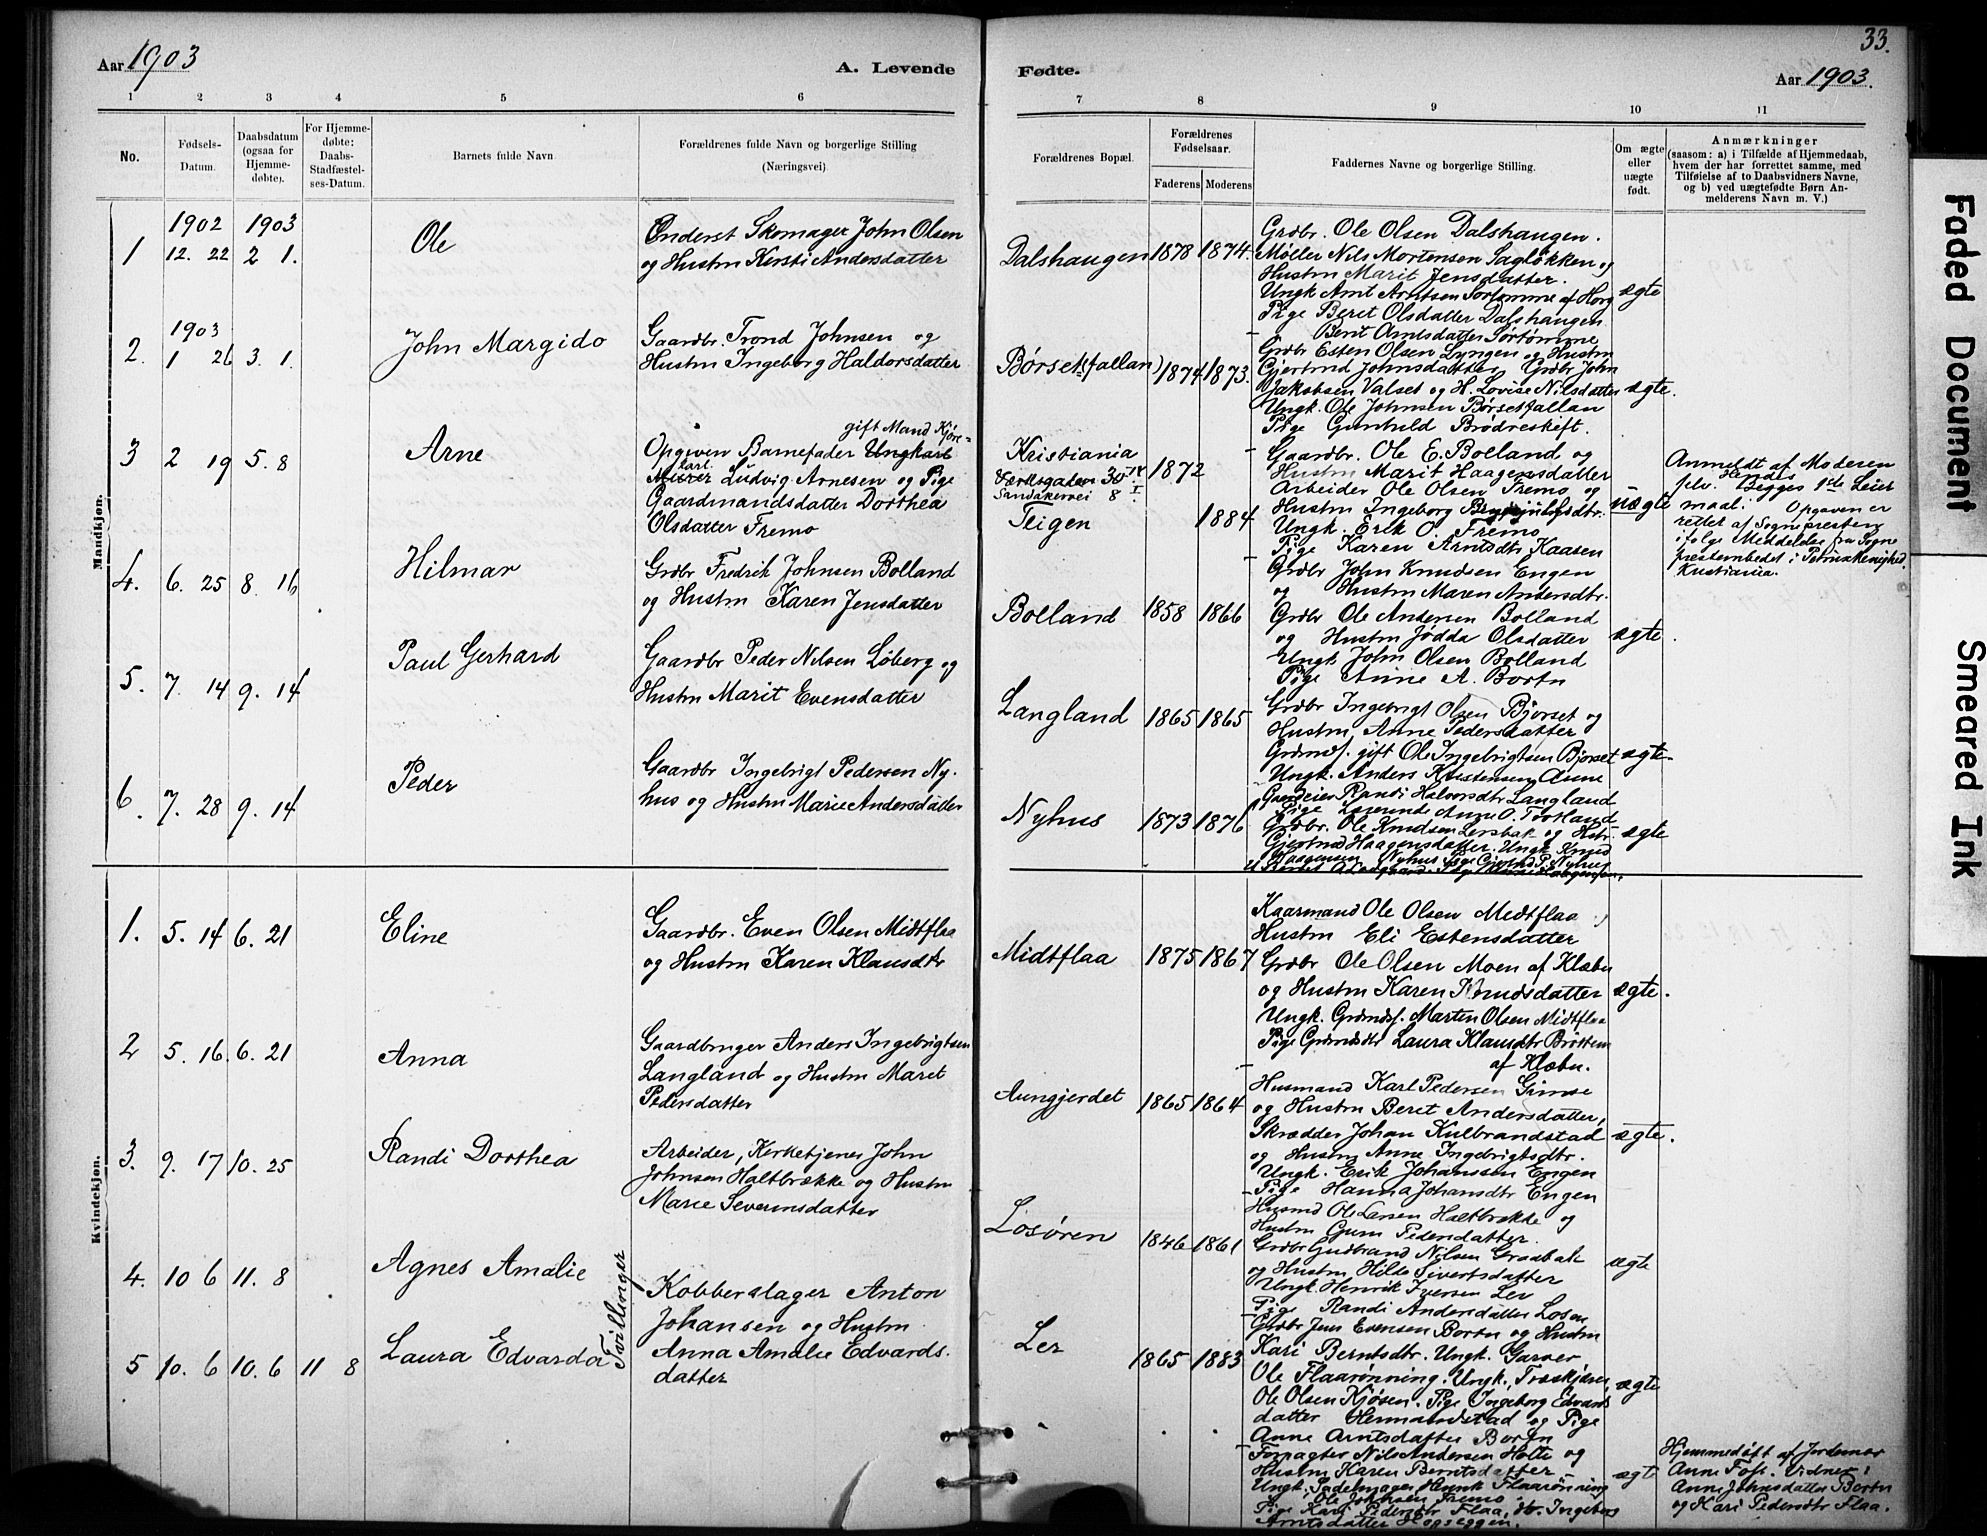 Aar 1903
A. Levende
Fødte.
33.
Aar 1903.
1 2 3 4 5 6 7 8 9 10 11
No.
Fødsels-
Datum.
Daabsdatum
(ogsaa for
Hjemme-
døbte).
For Hjemme-
døbte:
Daabs-
Stadfæstel-
ses-Datum.
Barnets fulde Navn
Forældrenes fulde Navn og borgerlige Stilling
(Næringsvei).
Forældrenes Bopæl.
Forældrenes
Fødselsaar.
Faderens Moderens
Faddernes Navne og borgerlige Stilling.
Om ægte
eller
uægte
født.
Anmærkninger
(saasom: a) i Tilfælde af Hjemmedaab,
hvem der har forrettet samme, med
Tilføielse af to Daabsvidners Navne,
og b) ved uægtefødte Børn An-
melderens Navn m. V.)
Mandkjøn.
1902 1903
1 12. 22 2 1.
Ole
Skomager John Olsen
og Hustru Kersti Andersdatter
Dalshaugen 1878 1874.
Grdbr. Ole Olsen Dalshaugen.
Møller Nils Mortensen Sagløkken og
Hustru Marit Jensdatter.
Ungk Arnt Arntsen Sørtømme af Horg
Pige Beret Olsdatter Dalshaugen
Berit Arntsdatter Sørtømme
ægte
1903
2. 1 26 3. 1.
John Margido
Gaardbr. Trond Johnsen og
Hustru Ingeborg Haldorsdatter
Børset(fallan) 1874 1873.
Grdbr Esten Olsen Lyngen og Hustru
Gjertrud Johnsdatter Grdbr John
Jakobsen Valset og H. Lovise Nilsdatter
Ungk. Ole Johnsen Børsetfallan
Pige Gunhild Brødreskift.
ægte.
3 2 19 5. 8
Arne
gift Mand Kjøre-
Opgiven Barnefader Ungkarl
Murer Ludvig Arnesen og Pige
Gaardmandsdatter Dorthea
Olsdatter Fremo
Kristiania
30
Sandakervei 8 I
Teigen
1872
1884
Gaardbr. Ole E. Bolland og
Hustru Marit Haagensdatter
Arbeider Ole Olsen Fremo og
Hustru Ingeborg
Ungk. Erik O. Fremo
Pige Karen Arntsdtr Kaasen
uægte
Anmeldt af Moderen
selv. Begges 1ste Leier
maal. Opgaven er
rettet af Sognepresten
ifølge Meddelelse fra Sogne
presternbedet i Petrus menighed,
Kristiania.
4. 6. 25 8. 16
Hilmar
Grdbr Fredrik Johnsen Bolland
og Hustru Karen Jensdatter
Bolland 1858 1866
Grdbr John Knudsen Engen
og Hustru Maren Andersdtr.
Grdbr Ole Andersen Bolland
og Hustru Jødda Olsdatter
Ungk John Olsen Bolland
Pige Anne A. Bortn
ægte.
5. 7. 14 9. 14
Paul Gerhard
Gaardbr Peder Nilsen Løberg og
Hustru Marit Evensdatter
Langland 1865 1865
Grdbr Ingebrigt Olsen Bjørset og
Hustru, Anne Pedersdatter
Grdmds. gift Ole Ingebrigtsen Bjørset
Ungk. Anders Kristensen Aune
Randi Halvorsdtr Langland
Pige Lærerinde Anne O.
ægte.
6. 7. 28 9. 14
Peder
Gaardbr Ingebrigt Pedersen Ny-
hus og Hustru Marie Andersdatter
Nyhus 1873 1876
Grdbr. Ole Knudsen Lersbak og Hstr.
Gjertrud Haagensdatter. Ungk Knud
Haagensen Nyhus Pige Gjertrud P. Nyhus
ægte
Kvindekjøn.
1. 5. 14 6. 21
Eline
Gaardbr. Even Olsen Midtflaa
og Hustru Karen Klausdtr
Midtflaa 1875 1867
Kaarmand Ole Olsen Midtflaa
Hustru Eli Estensdatter
Grdbr Ole Olsen Moen af Klæbu
og Hustru Karen Knudsdatter
Ungk. Grdmds. Martin Olsen Midtflaa
Pige Grdmdsdtr Laura Klausdtr Brøttem
af Klæbu.
ægte.
2 5. 16. 6. 21
Anna
Gaardbruger Anders Ingebrigtsen
Langland og Hustru Maret
Pedersdatter
Aungjerdet 1865 1864
Husmand Karl Pedersen Gimse
og Hustru Beret Andersdatter,
Skrædder Johan Kulbrandstad
og Hustru Anne Ingebrigtsdtr.
Ungk. Erik Johanssen Engen
Pige Hanna Johansdtr Engen
ægte.
3. 9. 17 10. 25
Randi Dorthea
Arbeider, Kirketjener John
Johnsen Haltbrække og Hustru
Marie Severinsdatter
Losøren 1846 1861
Husmd Ole Larsen Haltbrekke og
Hustru Guru Pedersdatter.
Grdbr Gudbrand Nilsen Graabak
og Hustru Hilde Sivertsdatter
Ungk Henrik Iversen Ler
Pige Randi Andersdatter Losen
ægte
4. 10 6 11. 8
Agnes Amalie
Tvillinger
Kobberslager Anton
Johansen og Hustru
Anna Amalie Edvards-
datter
Ler 1865 1883
Grdbr Jens Evensen Bortn og Hustru
Kari Berntsdtr. Ungk. Garver
Ole Flaarønning. Ungk.
Ole Olsen Kjøsen. Pige Ingeborg Edvards
datter Hermandstad og Pige
Anne Arntsdatter Bortn
ægte
5 10. 6 10. 6 11 8
Laura Edvarda
Forpagter Nils Andersen Holte og
Hustru Karen Berntsdatter
Ungk. Sadelmager Henrik Flaarønning
Ole Johnsen Fremo
Pige Kari Pedersdtr Flaa, Ingeborg
Arntsdatter
ægt
Hjemmedøbt af Jordemor
Anne Foss. Vidner:
Anne Johnsdatter Bortn
og Kari Pedersdtr Flaa.
Faded Document
Smeared Ink